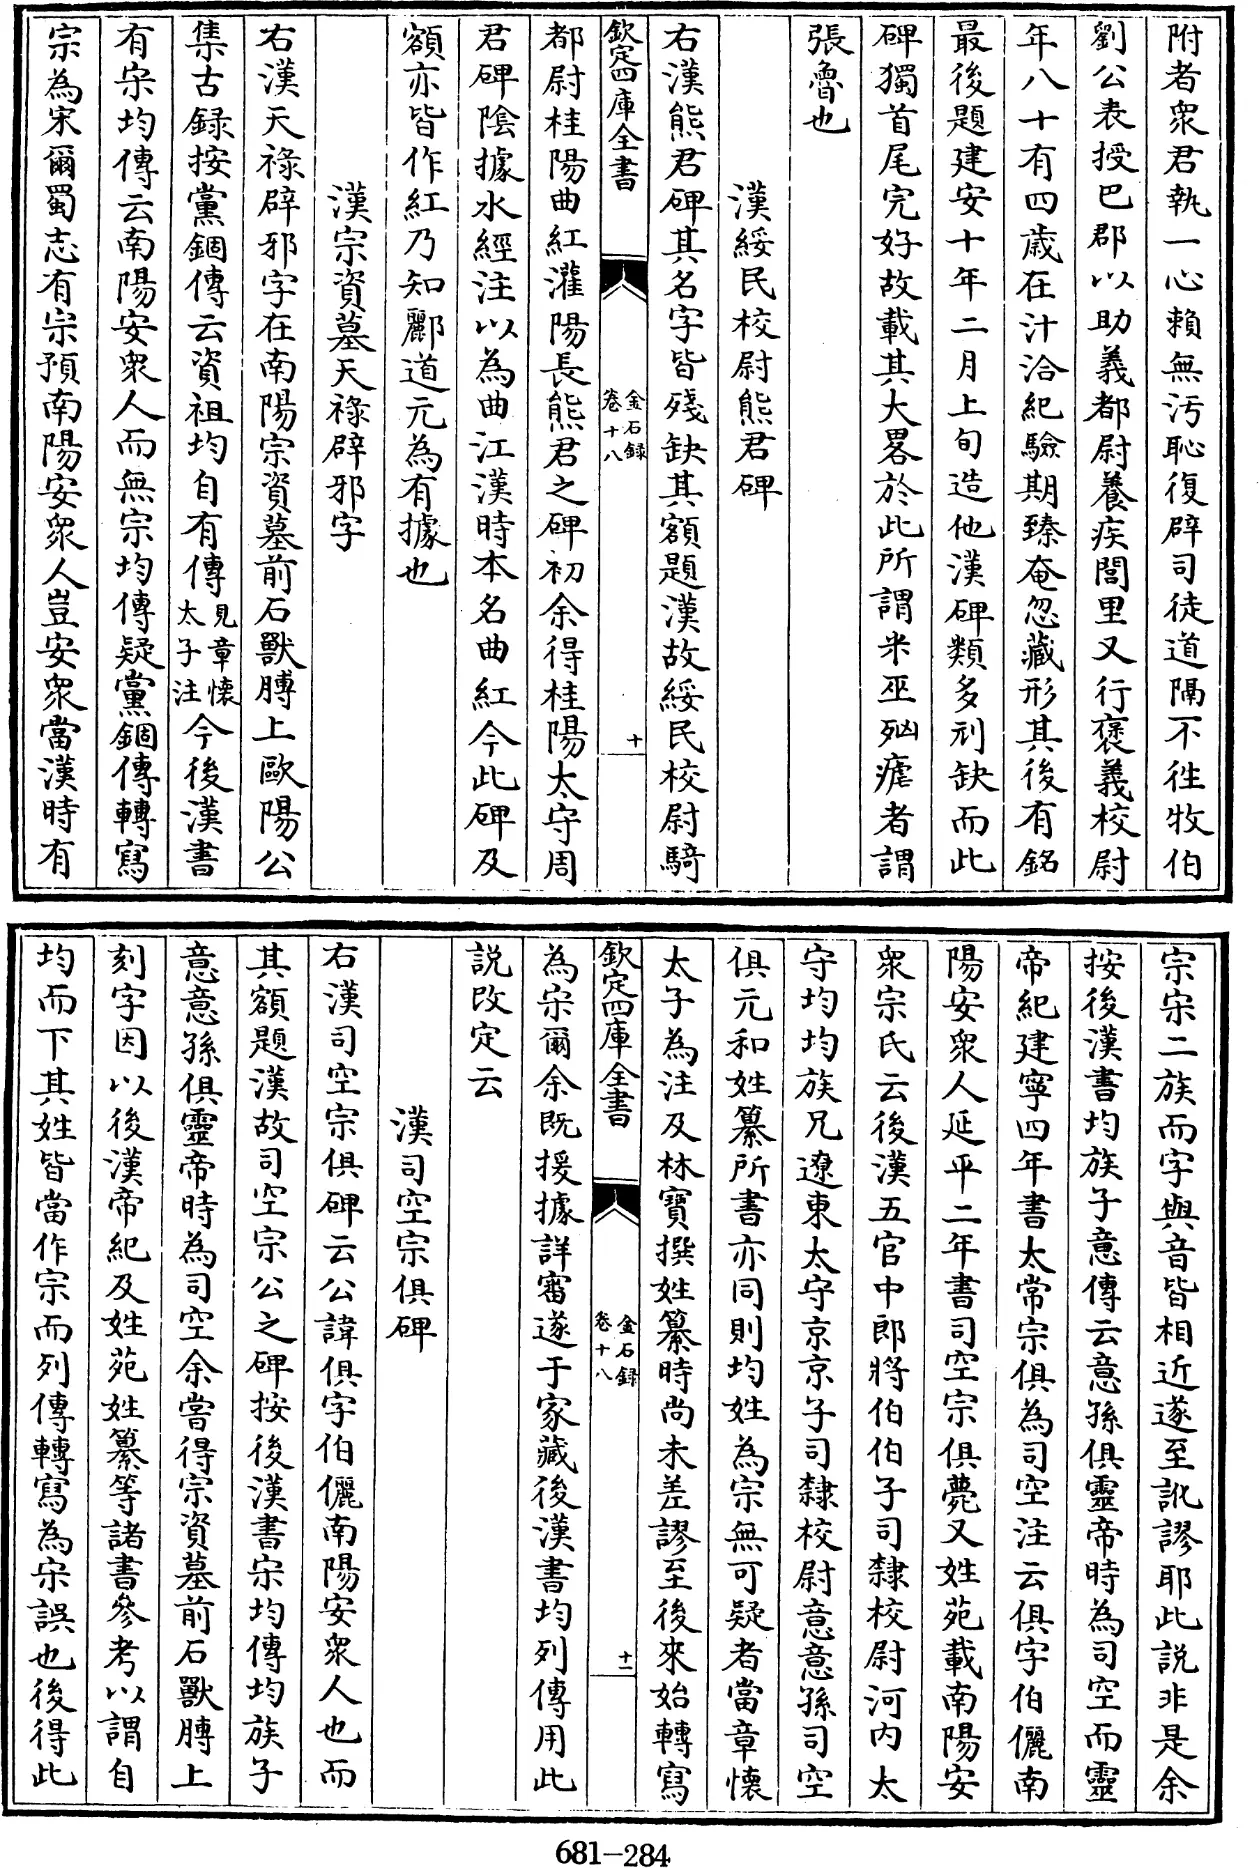 附者衆君執一心賴無汚恥復辟司徒道隔不徃牧伯
劉公表授巴郡以助義都尉養疾閭里又行褒義校尉
年八十有四歲在汁洽紀驗期臻奄忽藏形其後有銘
最後題建安十年二月上旬造他漢碑類多刓缺而此
碑獨首尾完好故載其大畧於此所謂米巫㐫瘧者謂
張魯也
漢綏民校尉熊君碑
右漢熊君碑其名字皆殘缺其額題漢故綏民校尉騎
欽定四庫全書
金石録
卷十八
十
都尉桂陽曲紅灌陽長熊君之碑初余得桂陽太守周
君碑陰據水經注以為曲江漢時本名曲紅今此碑及
額亦皆作紅乃知酈道元為有據也
漢宗資墓天祿辟邪字
右漢天祿辟邪字在南陽宗資墓前石獸膊上歐陽公
集古録按黨錮傳云資祖均自有傳見章懷太子注今後漢書
有宋均傳云南陽安衆人而無宗均傳疑黨錮傳轉寫
宗為宋爾蜀志有宗預南陽安衆人豈安衆當漢時有
宗宋二族而字與音皆相近遂至訛謬耶此説非是余
按後漢書均族子意傳云意孫俱靈帝時為司空而靈
帝紀建寧四年書太常宗俱為司空注云俱字伯儷南
陽安衆人延平二年書司空宗俱薨又姓苑載南陽安
衆宗氏云後漢五官中郎將伯伯子司隸校尉河内太
守均均族兄遼東太守京京子司隸校尉意意孫司空
俱元和姓纂所書亦同則均姓為宗無可疑者當章懷
太子為注及林寶撰姓纂時尚未差謬至後來始轉寫
欽定四庫全書
金石録
卷十八
十一
為宋爾余既援據詳審遂于家藏後漢書均列傳用此
説改定云
漢司空宗俱碑
右漢司空宗俱碑云公諱俱字伯儷南陽安衆人也而
其額題漢故司空宗公之碑按後漢書宋均傳均族子
意意孫俱靈帝時為司空余嘗得宗資墓前石獸膊上
刻字因以後漢帝紀及姓苑姓纂等諸書參考以謂自
均而下其姓皆當作宗而列傳轉寫為宋誤也後得此
681-284